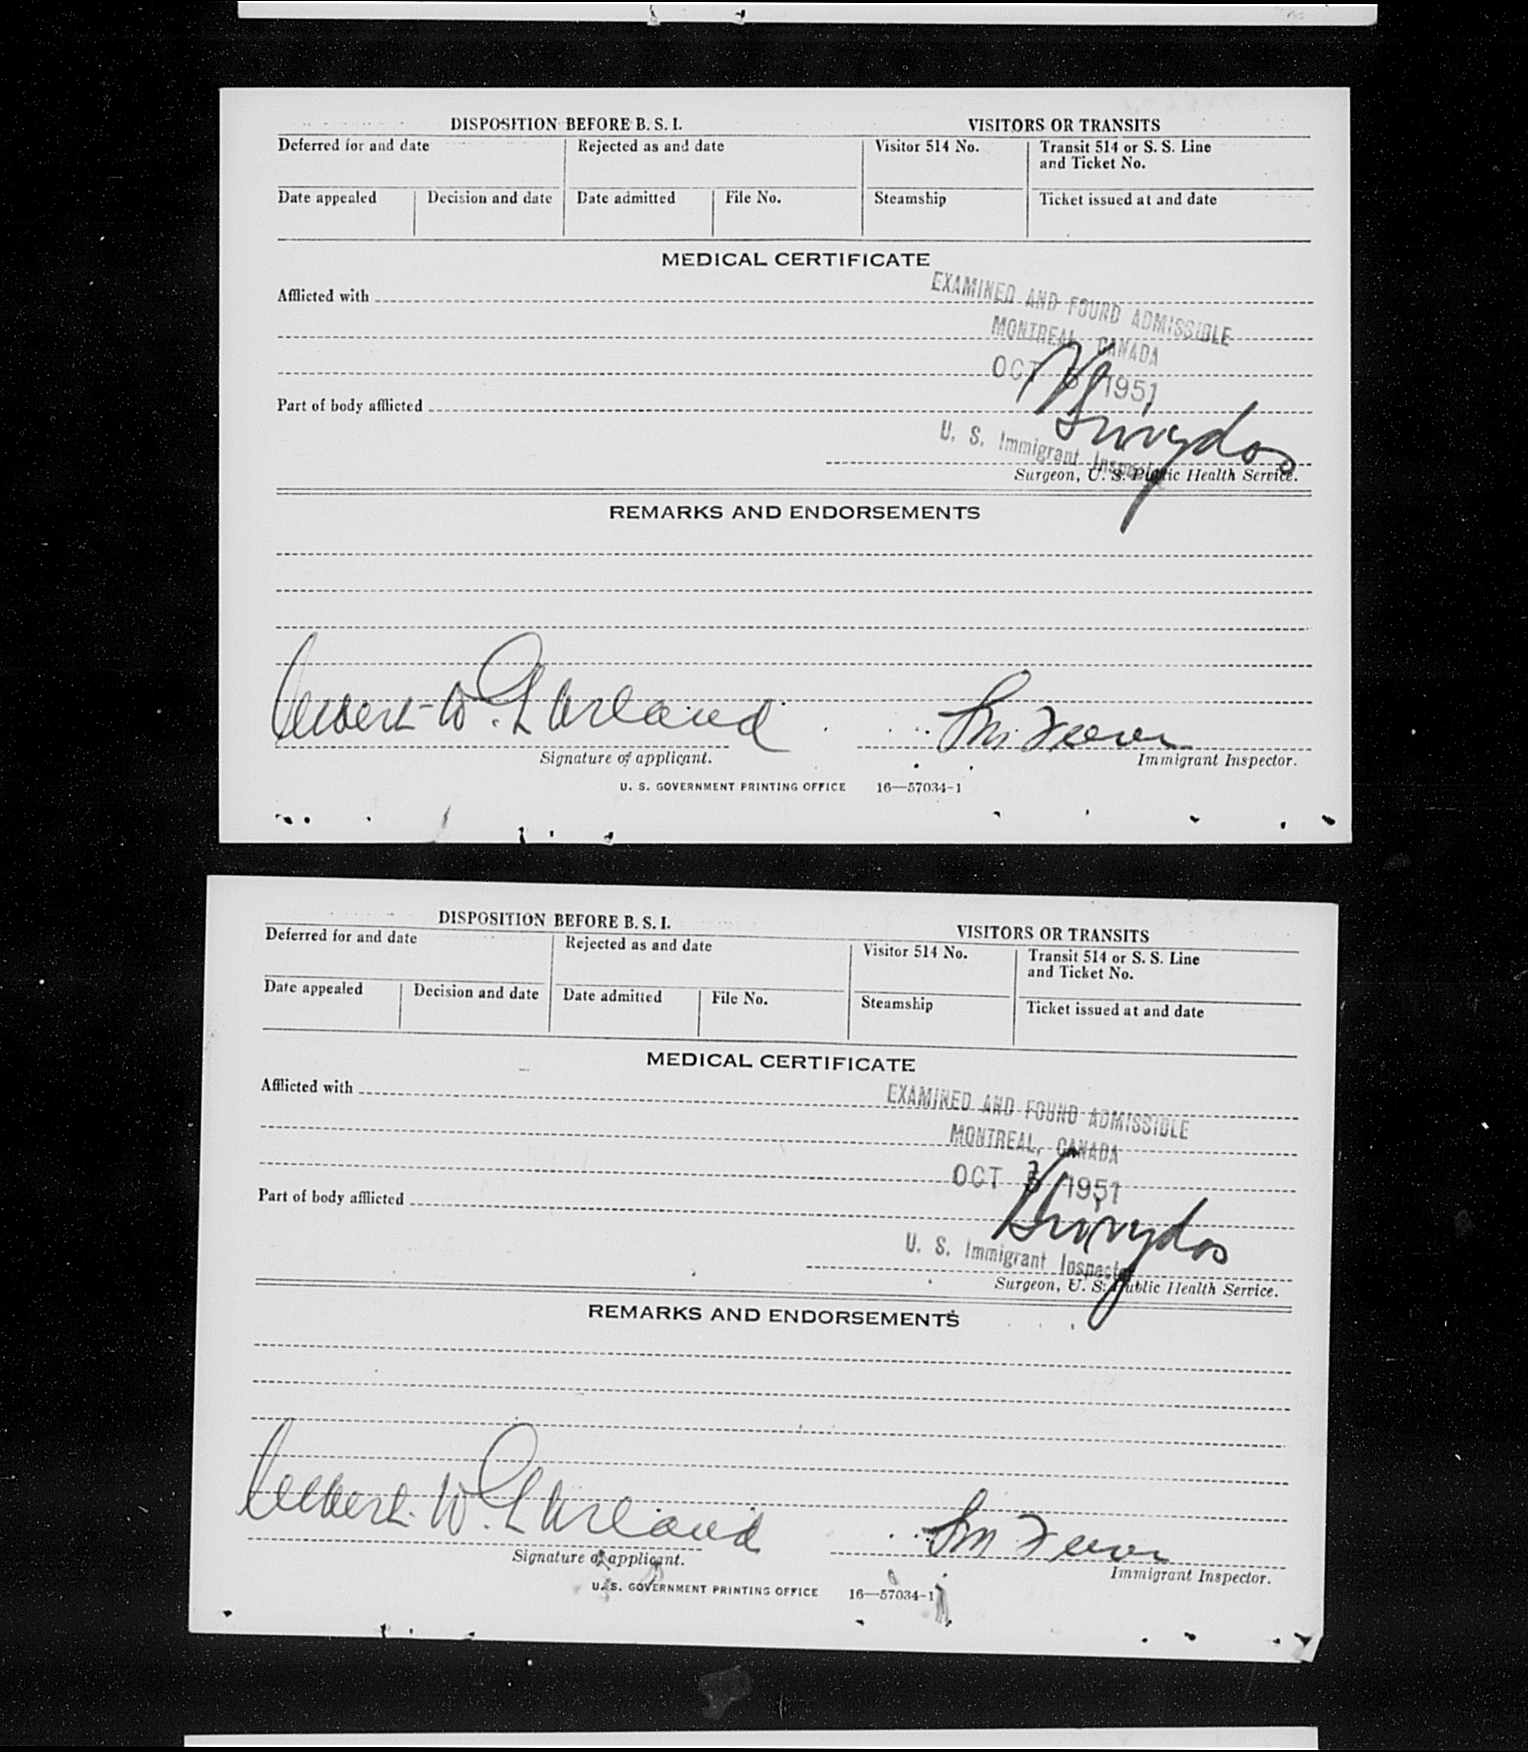 DISPOSITION BEFORE B. S. I.
VISITORS OR TRANSITS
Deferred for and date
Rejected as and date
Visitor 514 No.
Transit 514 or S. S. Line
and Ticket No.
Date appealed
Decision and date
Date admitted
File No.
Steamship
Ticket issued at and date
MEDICAL CERTIFICATE
Afflicted with
EXAMINED AND FOUND ADMISSIBLE
MONTREAL, CANADA
OCT 5 1951
Part of body afflicted
U. S. Immigrant Inspector
Surgeon, U. S. Public Health Service.
REMARKS AND ENDORSEMENTS
W. Garland
Signature of applicant.
Immigrant Inspector.
U. S. GOVERNMENT PRINTING OFFICE 16—57034-1
DISPOSITION BEFORE B. S. I.
VISITORS OR TRANSITS
Deferred for and date
Rejected as and date
Visitor 514 No.
Transit 514 or S. S. Line
and Ticket No.
Date appealed
Decision and date
Date admitted
File No.
Steamship
Ticket issued at and date
MEDICAL CERTIFICATE
Afflicted with
EXAMINED AND FOUND ADMISSIBLE
MONTREAL, CANADA
OCT 1951
Part of body afflicted
U. S. Immigrant Inspector
Surgeon, U. S. Public Health Service.
REMARKS AND ENDORSEMENTS
W. Garland
Signature of applicant.
Immigrant Inspector.
U. S. GOVERNMENT PRINTING OFFICE 16—57034-1